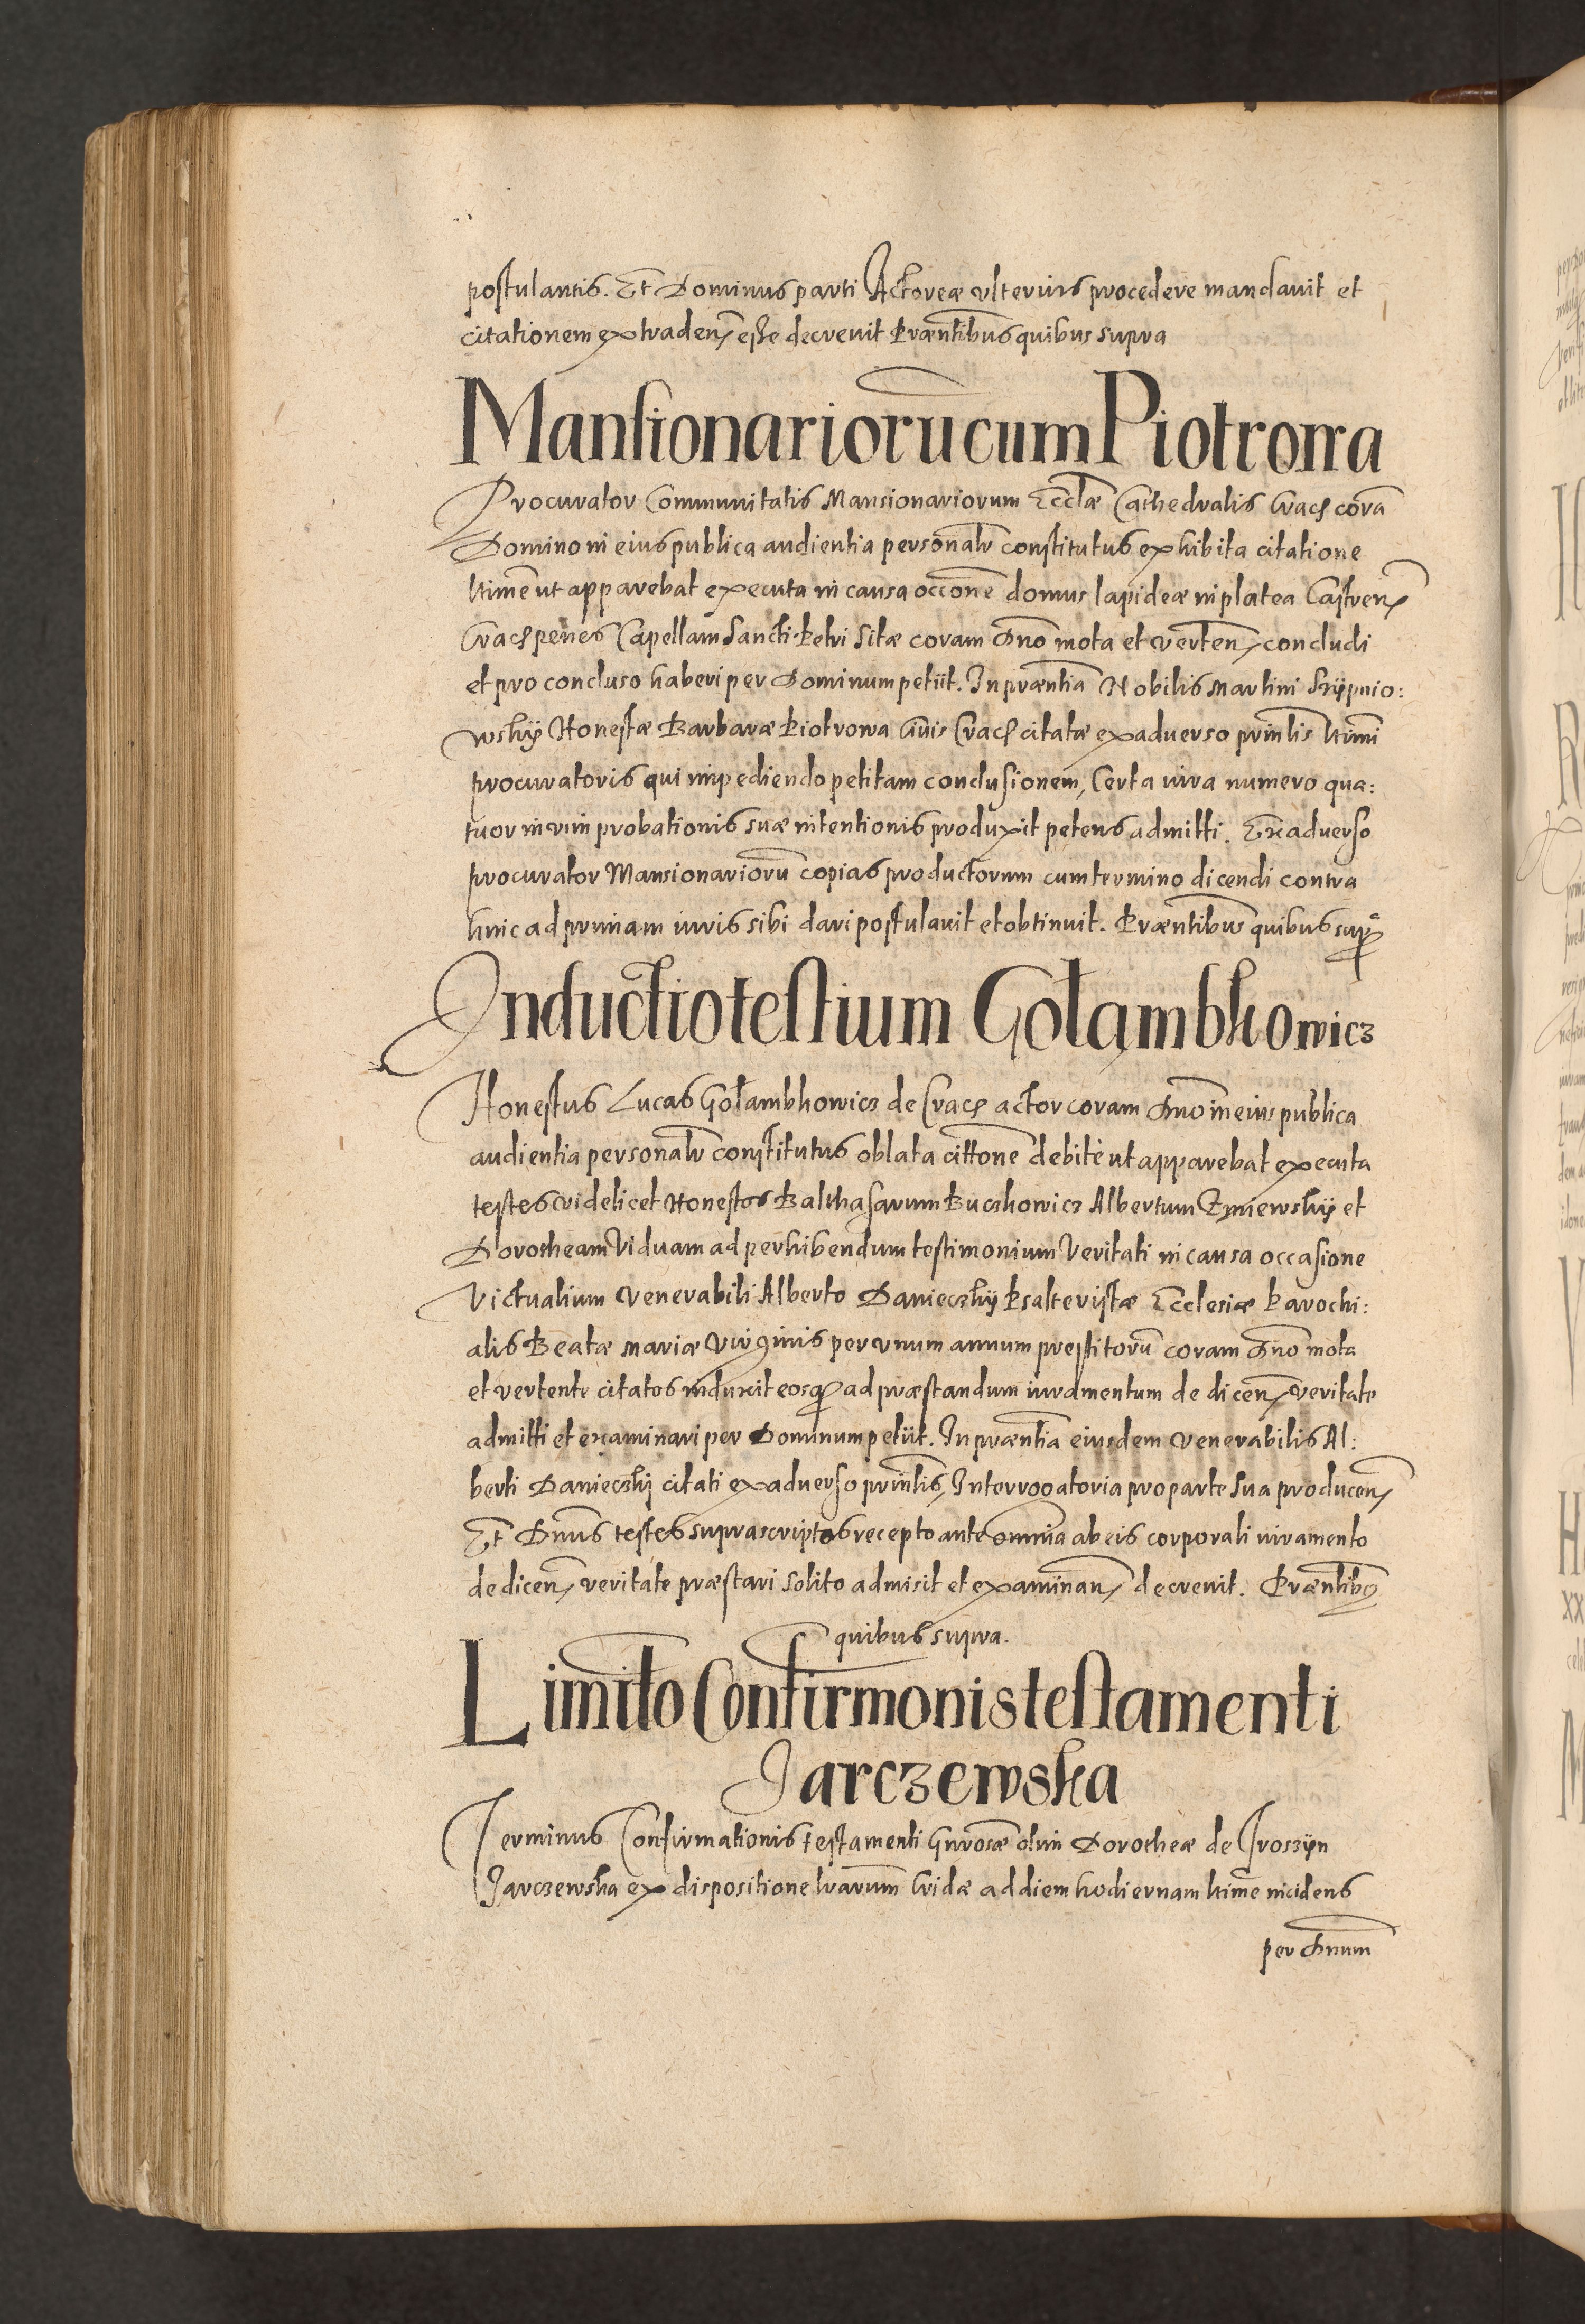 postulantis. Et Dominus parti Actoreæ vlterius procedere mandauit et
citationem extraden̄ esse decreuit Præntibus quibus supra
Mansionarioru cum Piotrowa
Procurator Communitatis Mansionariorum Eccłæ Cathedralis Crac̄ corā
Domino in eius publica audientia personalr̄ constitutus exhibita citatione
ltime ut apparebat executa in causa occōne domus lapideæ in platea Castren̄
Crac̄ penes Capellam Sancti Petri sitæ coram Dn̄o mota et verten̄ concludi
et pro concluso haberi per Dominum petiit. In præntia Nobilis Martini Szÿpnio:
wskÿ Honestæ Barbaræ Piotrowa Ciuis Crac̄ citatæ exaduerso prin̄lis ltimi
procuratoris qui impediendo petitam conclusionem, Certa iura numero qua:
tuor in vim probationis suæ intentionis produxit petens admitti. Exaduerso
procurator Mansionariorū copias productorum cum termino dicendi contra
hinc ad primam iuris sibi dari postulauit et obtinuit. Præntibus quibus supra
Inductio testium Gołambkowicz
Honestus Lucas Gołambkowicz de Crac̄ actor coram Dn̄o in eius publica
audientia personalr̄ constitutus oblata cittōne debitè ut apparebat executa
testes videlicet Honestos Balthasarum Buczkowicz Albertum Zmiewskÿ et
Dorotheam Viduam ad perhibendum testimonium Veritati in causa occasione
Victualium Venerabili Alberto Danieczkÿ Psalteristæ Ecclesiæ Parochi:
alis Beatæ Mariæ Virginis per vnum annum prestitorū coram Dn̄o mota
et vertente citatos induxit eosq ad præstandum iuramentum de dicen̄ veritate
admitti et examinari per Dominum petiit. In præntia eiusdem Venerabilis Al:
berti Danieczkÿ citati exaduerso prin̄lis, Interrogatoria pro parte sua producen̄
Et Dn̄us testes suprascriptos recepto ante omnia ab eis corporali iuramento
de dicen̄ veritate præstari solito admisit et examinan̄ decreuit. Præntibus
quibus supra.
Limito Confirmonis testamenti
Jarczewska
Terminus Confirmationis testamenti Gn̄rosæ olim Dorotheæ de Troszÿn
Jarczewska ex dispositione lr̄arum Cridæ ad diem hodiernam ltime incidens
per Dnum